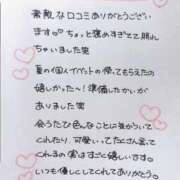 素敵な口コミありがとうござい
ます♡ ちょっと褒めすぎてて照れ
ちゃいました笑
夏の個人イベントの 帰ってもらえたの
嬉しかった〜! 準備したかいが
ありました笑
会うたび色んなことに気づいて
くれたり、可愛いってたくさん言って
くれるの実はすごく嬉しいです
いつも優しくしてくれてありがとう♡